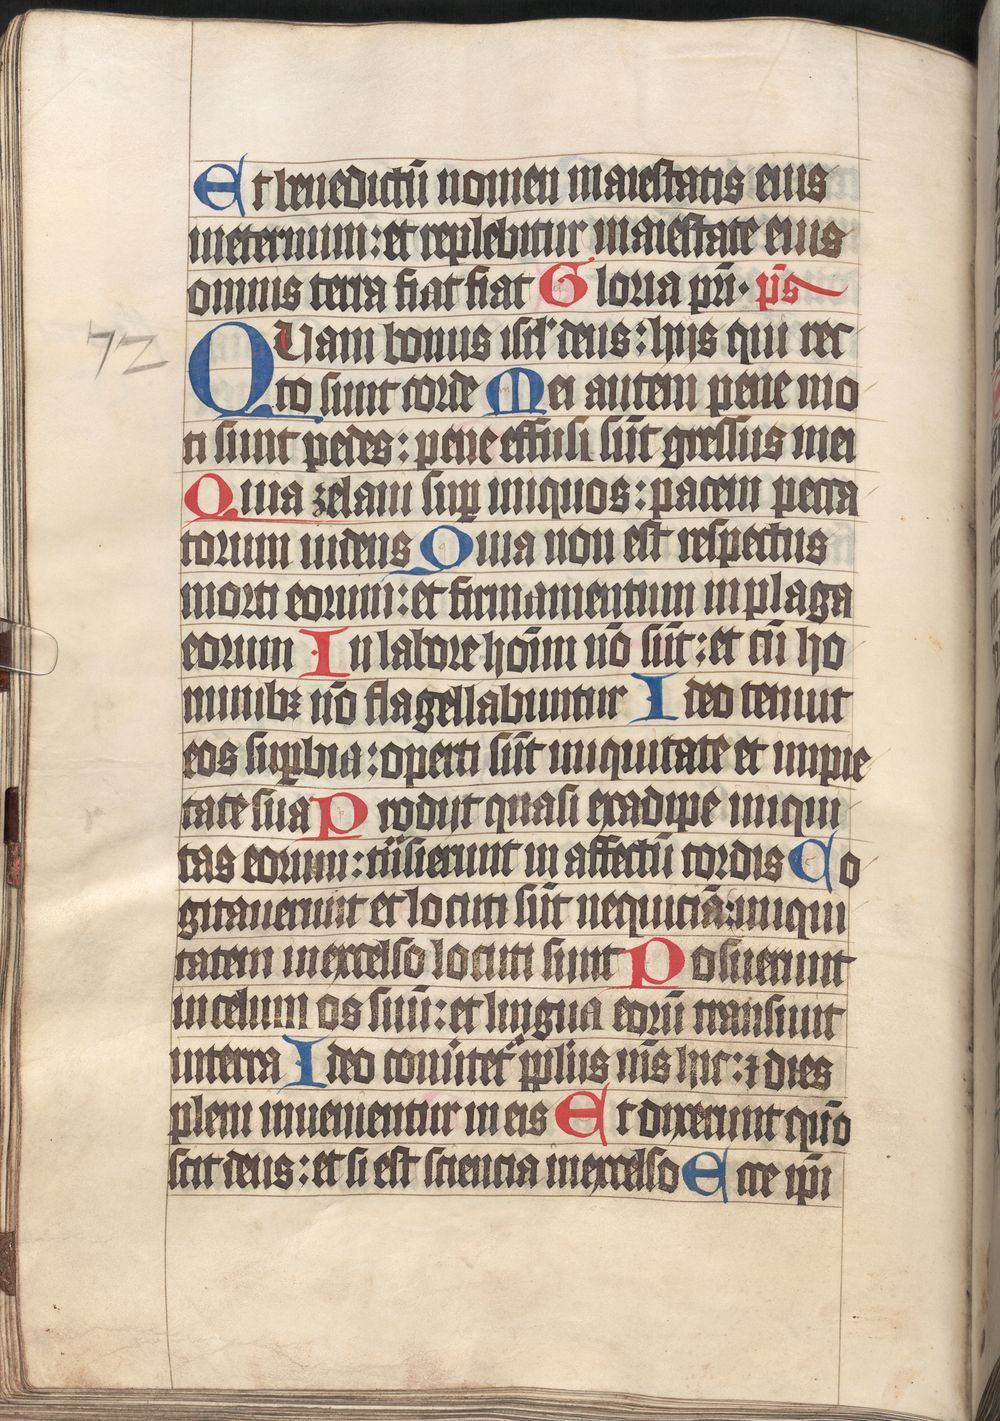 Et benedictū nomen maiestatis eius
ineternum: et replebitur maiestate eius
omnis terra fiat fiat Gloria pr̄i. ps̄
72
QUam bonus isrl̄ deus: hijs qui rec
to sunt corde Mei autem pene mo
ti sunt pedes: pene effusi sūt gressus mei
Quia zelaui suꝑ iniquos: pacem pecca
torum uidens Quia non est respectus
morti eorum: et firmamentum in plaga
eorum In labore hoīm nō sūt: et cū ho
minibꝫ nō flagellabuntur Ideo tenuit
eos suꝑbia: operti sūt iniquitate et impie
tate sua Prodijt quasi exadipe iniqui
tas eorum: trāsierunt in affectū cordis Co
gitauerunt et locuti sūt nequiciā: iniqui
tatem inexcelso locuti sunt Posuerunt
incelum os suū: et lingua eorū transiuit
interra Ideo conūtet᷑ ppl̄us mūs hic: ⁊ dies
pleni inuenientur in eis Et dixerunt quō
scit deus: et si est sciencia inexcelso Ecce ip̄i